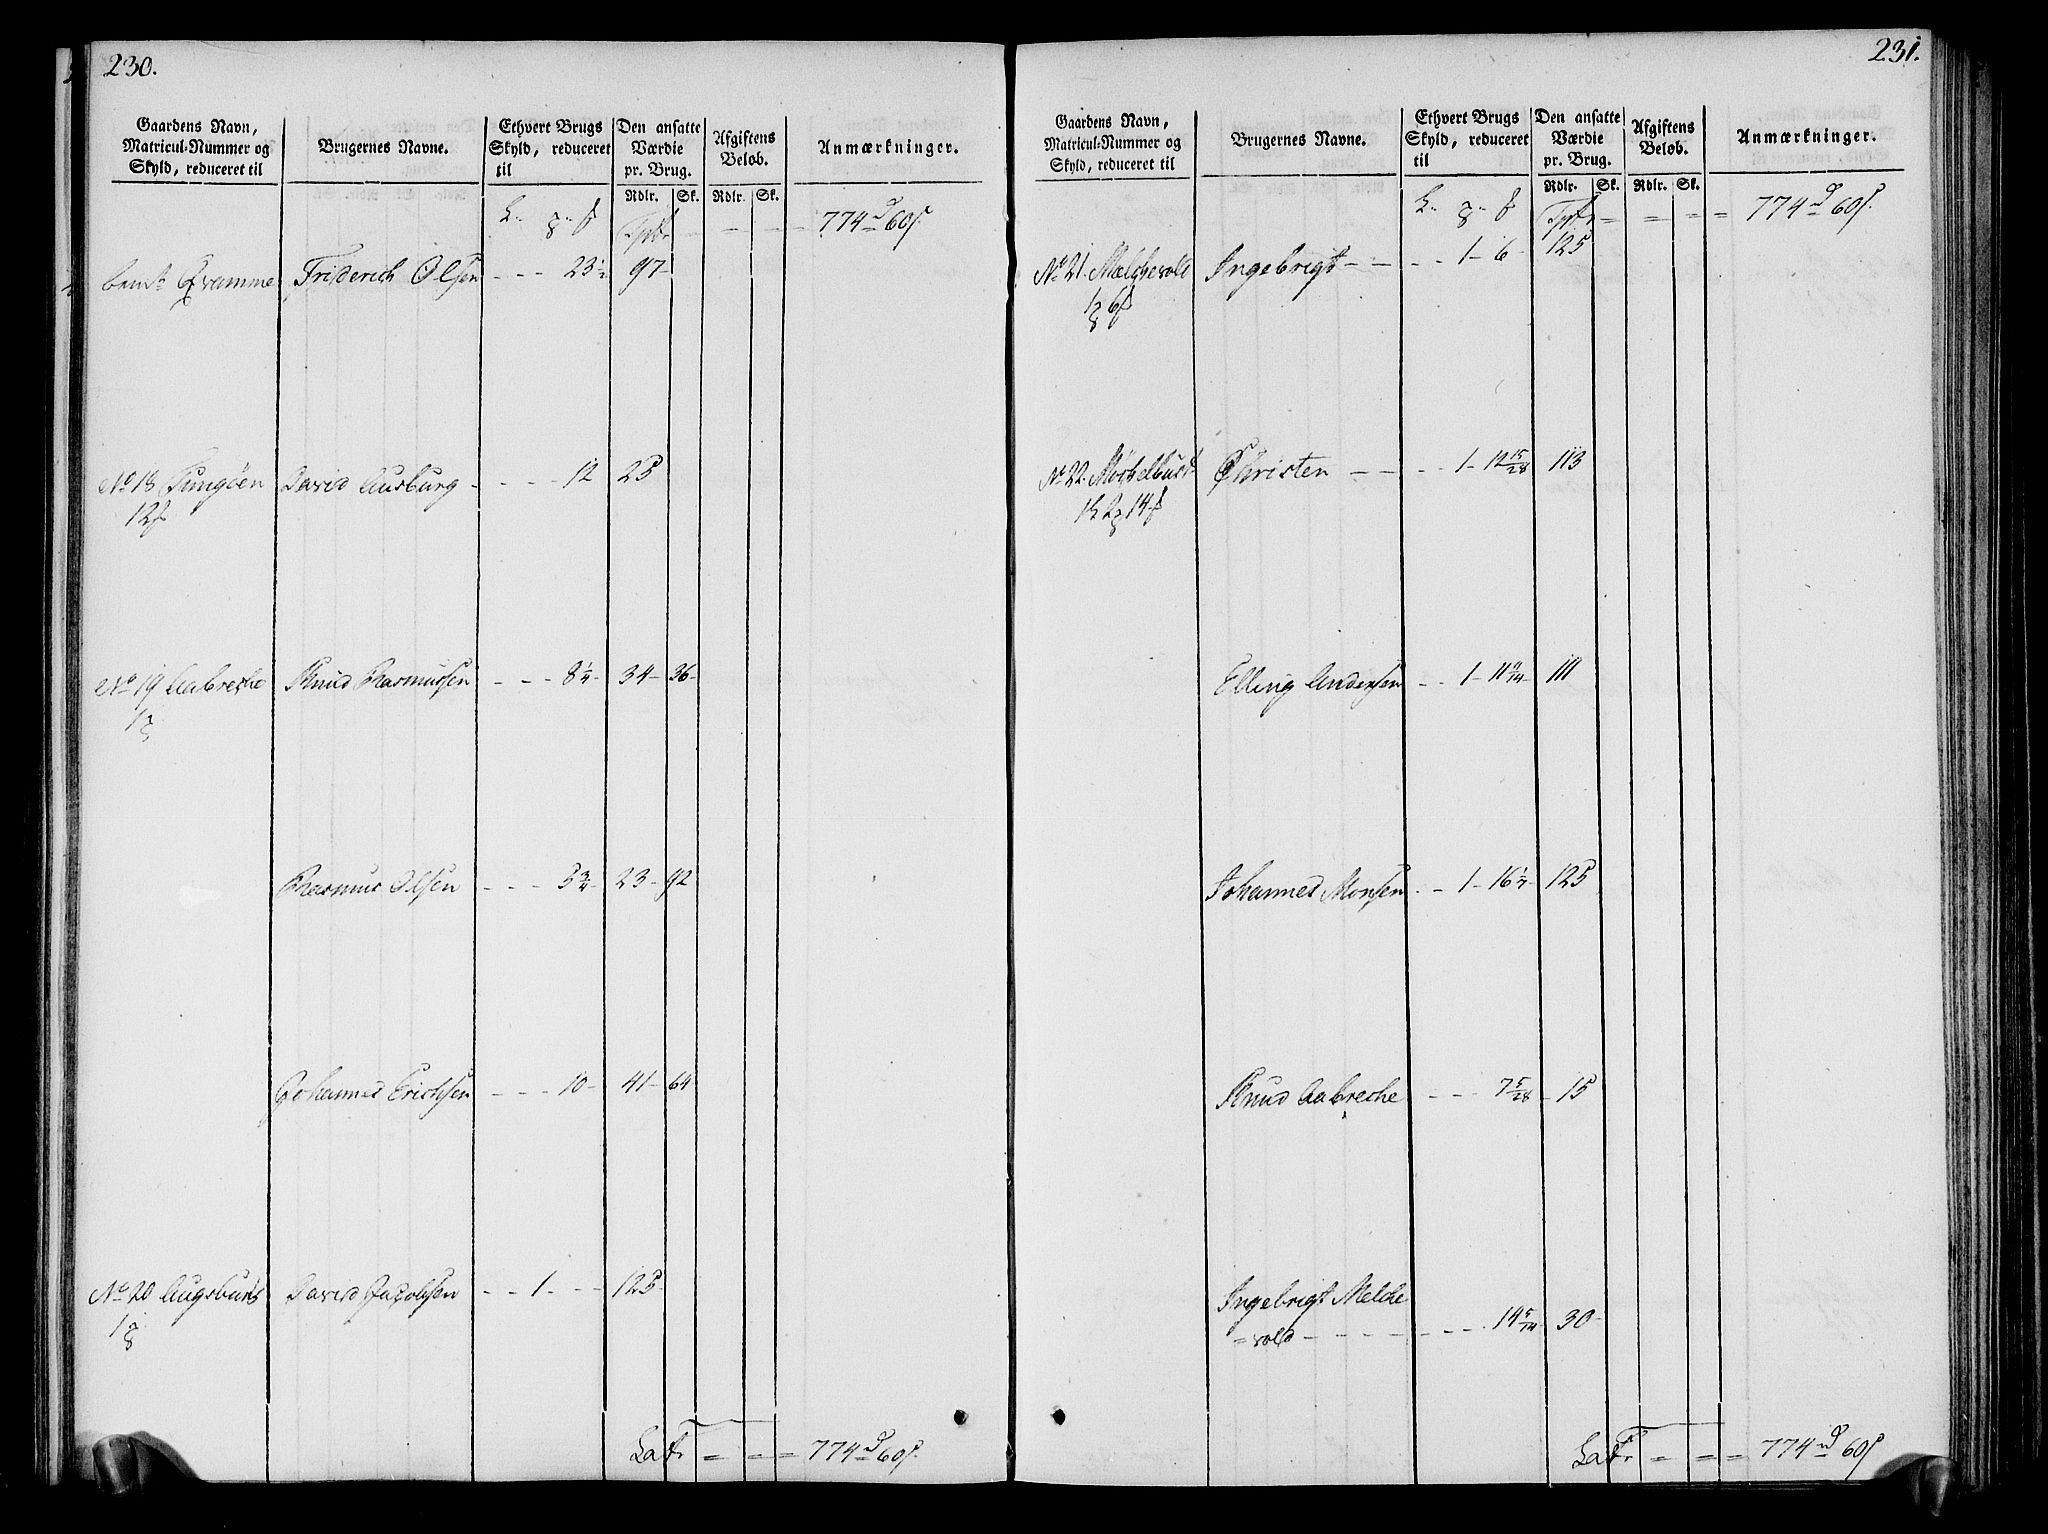 230.
Gaardens Navn, Matricul-Nummer og Skyld, reduceret til
Brugernes Navne.
Ethvert Brugs Skyld, reduceret til
Den ansatte Værdie pr. Brug.
Afgiftens Beløb.
Anmærkninger.
Rdlr. Sk. Rdlr. Sk.
774 60
Friderich Olsen - - - 23 1/2 97
No 18 Tungöen David Ausburg - - - - 12 25
12
No 19 Aabrecke Knud Rasmussen - - - 8 1/4 34 - 36
1
Rasmus Olsen - - - 5 3/4 23 - 92
Johannes Erichsen - - - 10 - 41 - 64
No 20 Augsburg David Jacobsen - - 1 - - - 125
1
Lat. = = = 774 60
231.
Gaardens Navn, Matricul-Nummer og Skyld, reduceret til
Brugernes Navne.
Ethvert Brugs Skyld, reduceret til
Den ansatte Værdie pr. Brug.
Afgiftens Beløb.
Anmærkninger.
Rdlr. Sk. Rdlr. Sk.
774 60
No 21 Melchevold Ingebrigt - - - - 1 - 6 - 125
1 6
No 22 Christen - - - - 1 - 12 15/28 113
14
Elling Andersen - - 1 - 11 9/14 111
Johannes Monsen - - 1 - 16 1/7 125
Knud Aabreche - - - 7 5/28 - 15
Ingebrigt Melche
= vold - - - - - - - 14 5/14 30 -
Lat. = = = 774 60